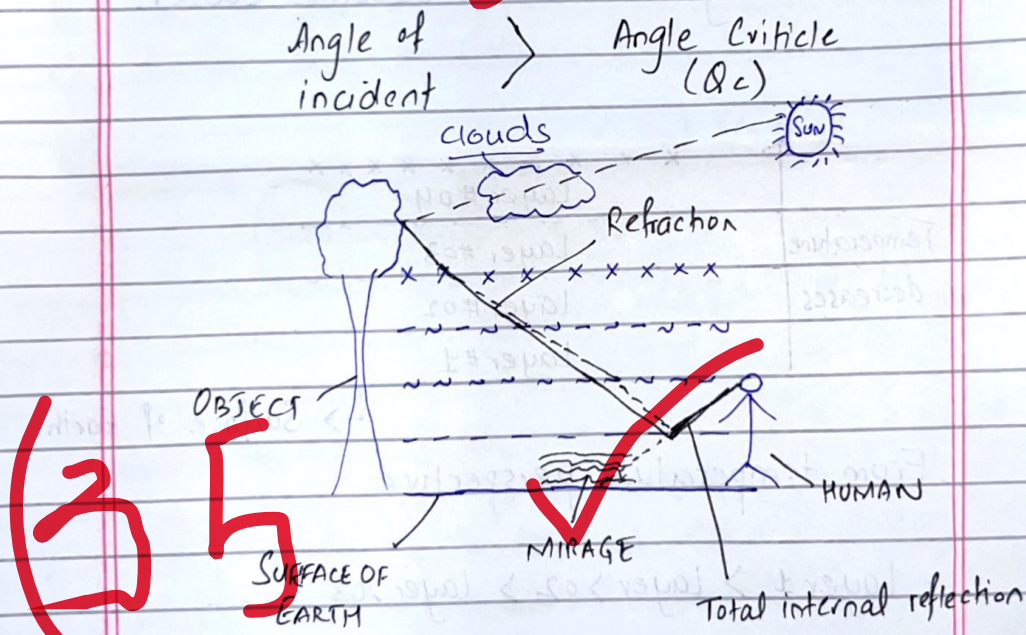 Angle of > Angle Criticle
incident (Qc)
clouds
SUN
Refraction
OBJECT
HUMAN
MIRAGE
SURFACE OF
EARTH
Total internal reflection